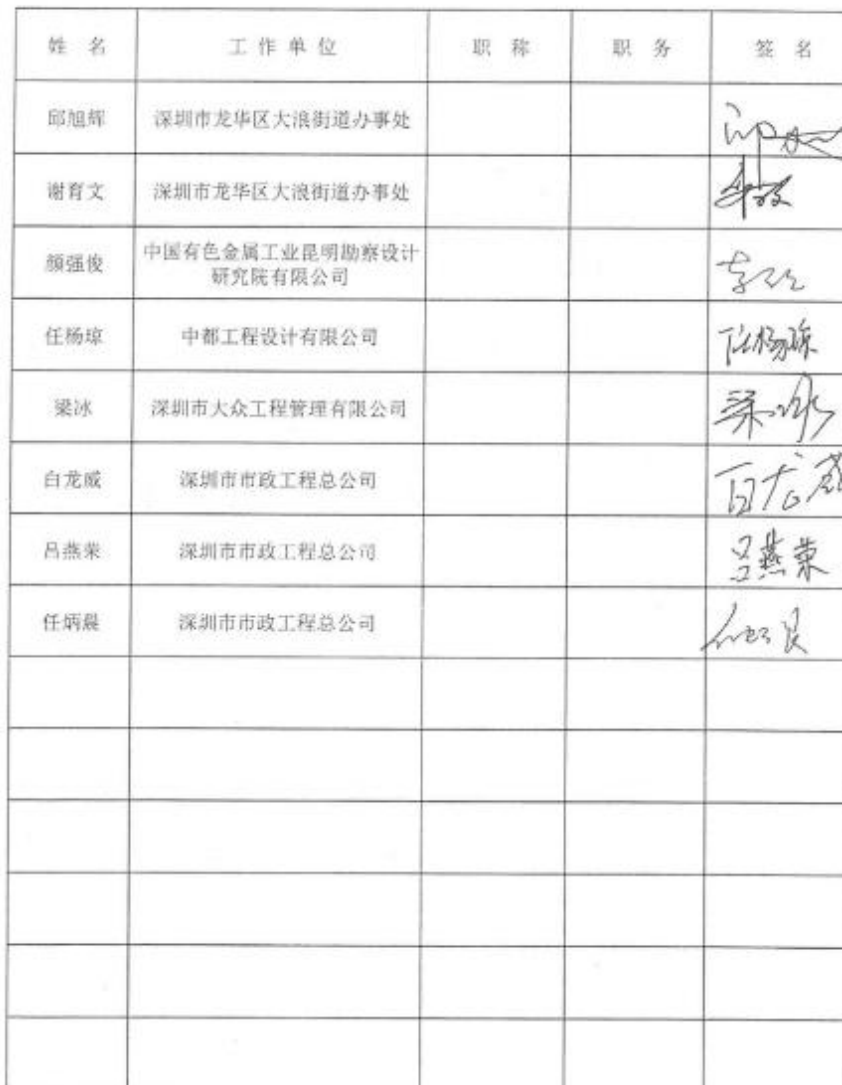 姓 名 工作单位 职 称 职 务 签 名
邱旭辉 深圳市龙华区大浪街道办事处
谢育文 深圳市龙华区大浪街道办事处
颜强俊 中国有色金属工业昆明勘察设计
研究院有限公司
任杨琼 中都工程设计有限公司 任杨琼
梁冰 深圳市大众工程管理有限公司 梁冰
白龙威 深圳市市政工程总公司 白龙威
吕燕荣 深圳市市政工程总公司 吕燕荣
任炳晨 深圳市市政工程总公司